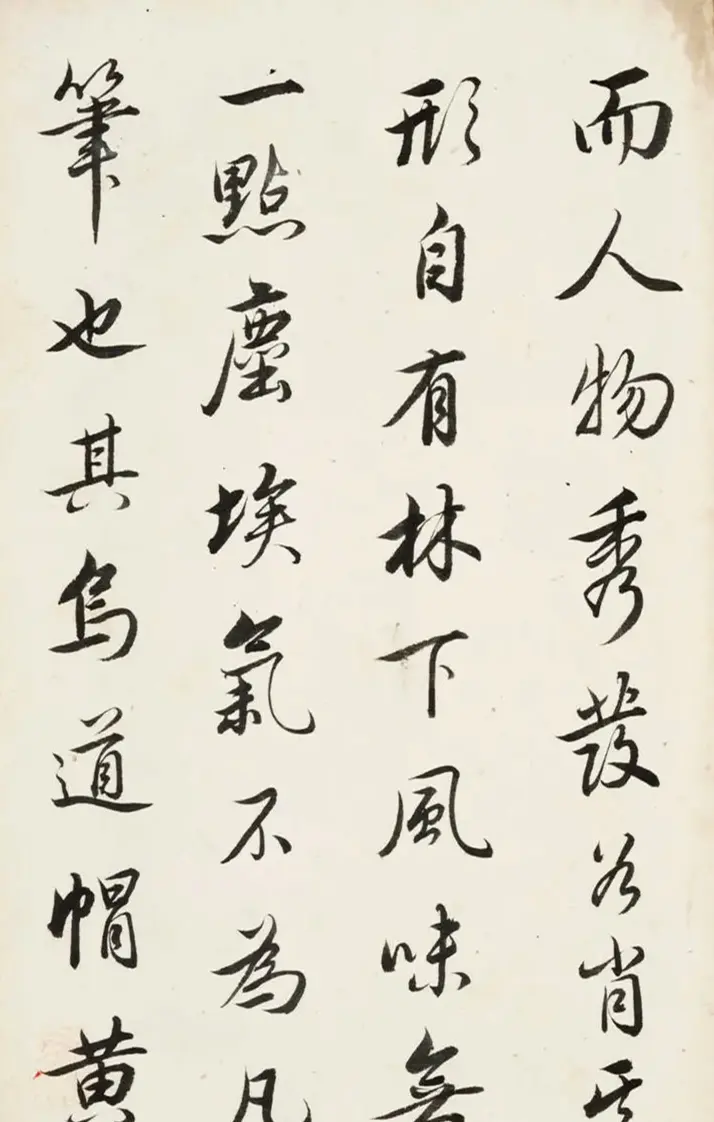 而人物秀發各肖其
形自有林下風味無
一點塵埃氣不為凡
筆也其烏道帽黃